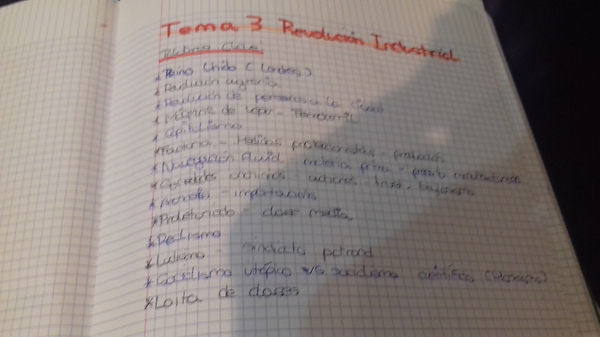 Tema 3 Revolución Industrial
Palabras Clave:
* Reino Unido (Londres)
* Revolución agraria
* Revolución de personas a la ciudad
* Máquina de vapor - Ferrocarril
* Capitalismo
* Factoria - Medidas proteccionistas - producción
* Navegación Fluvial - materias prima - producto
* Sociedades - acciones - trust,
* - importación
* Proletariado - clase media
* Realismo
* Ludismo - sindicato patronal
* Socialismo utópico v/s socialismo científico
* Loita de clases